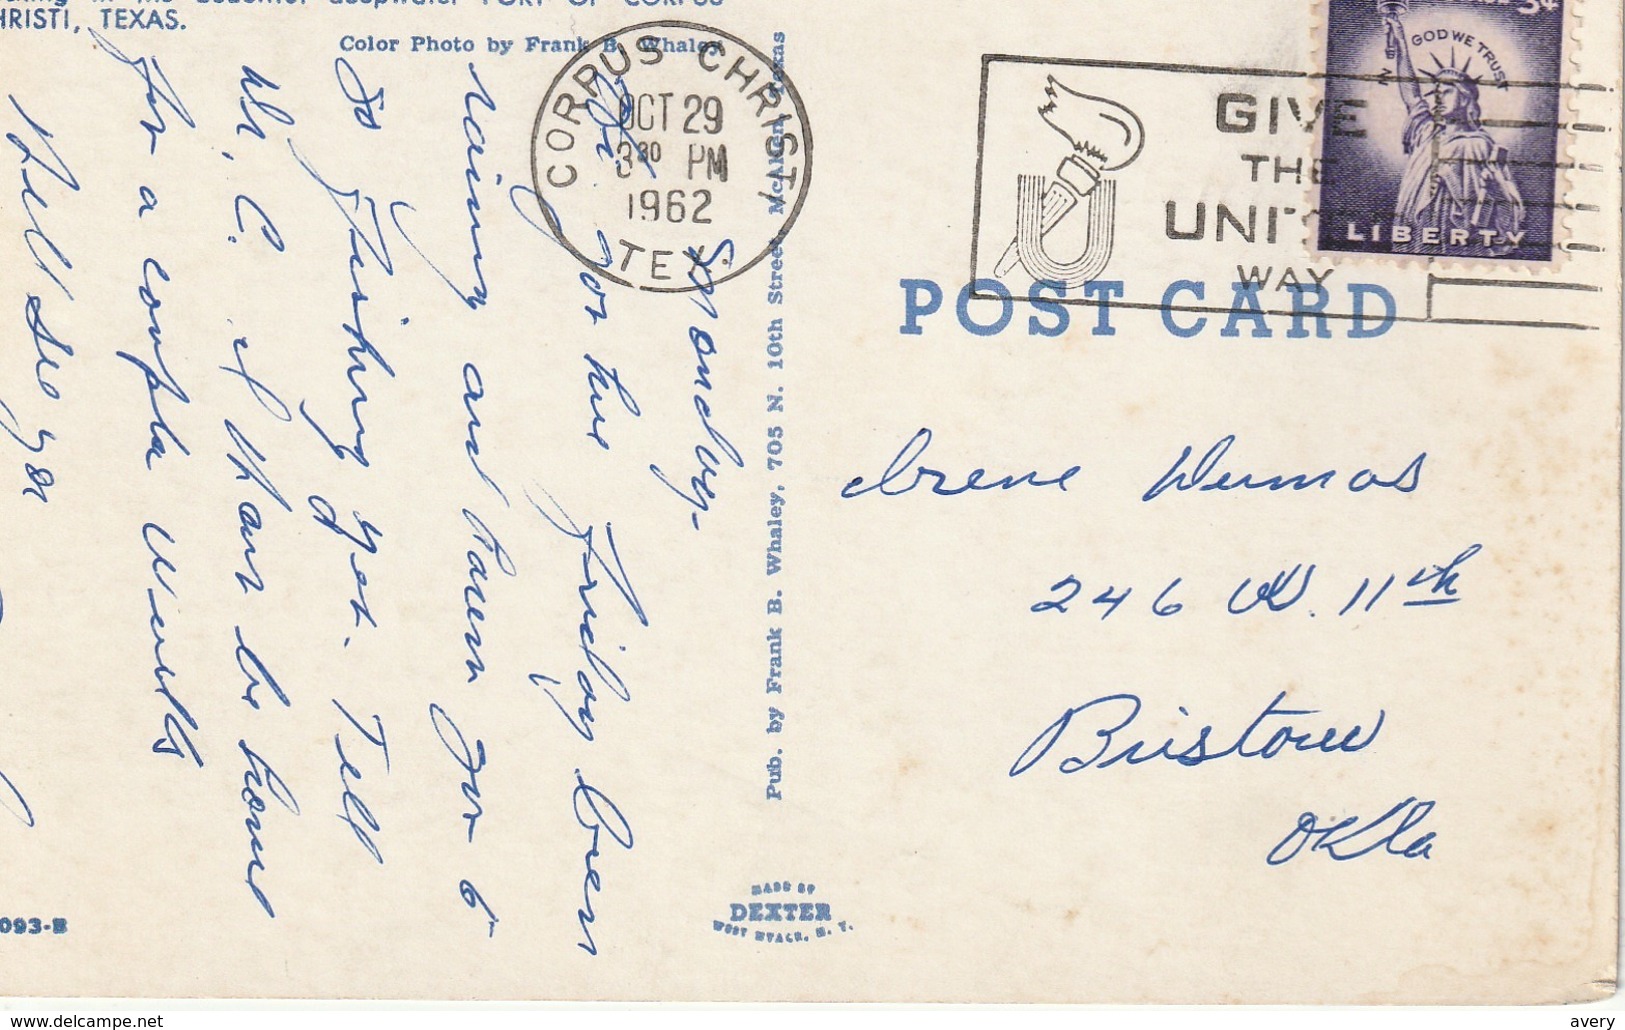 CHRISTI, TEXAS.
Color Photo by Frank B. Whaley
CORPUS CHRISTI,
OCT 29
3 30 PM
1962
TEX.
GIVE
THE
UNITED
WAY
IN GOD WE TRUST
3¢
LIBERTY
POST CARD
Monday-
Hi.
got here Friday. been
raining and haven got to
go Fishing yet. Tell
W. C. I than be home
for a coupla weeks
Will see you
Irene Dumas
246 W. 11th
Bristow
Okla
Pub. by Frank B. Whaley, 705 N. 10th Street, McAllen, Texas
MADE BY
DEXTER
WEST NYACK, N. Y.
093-B
avery
www.delcampe.net